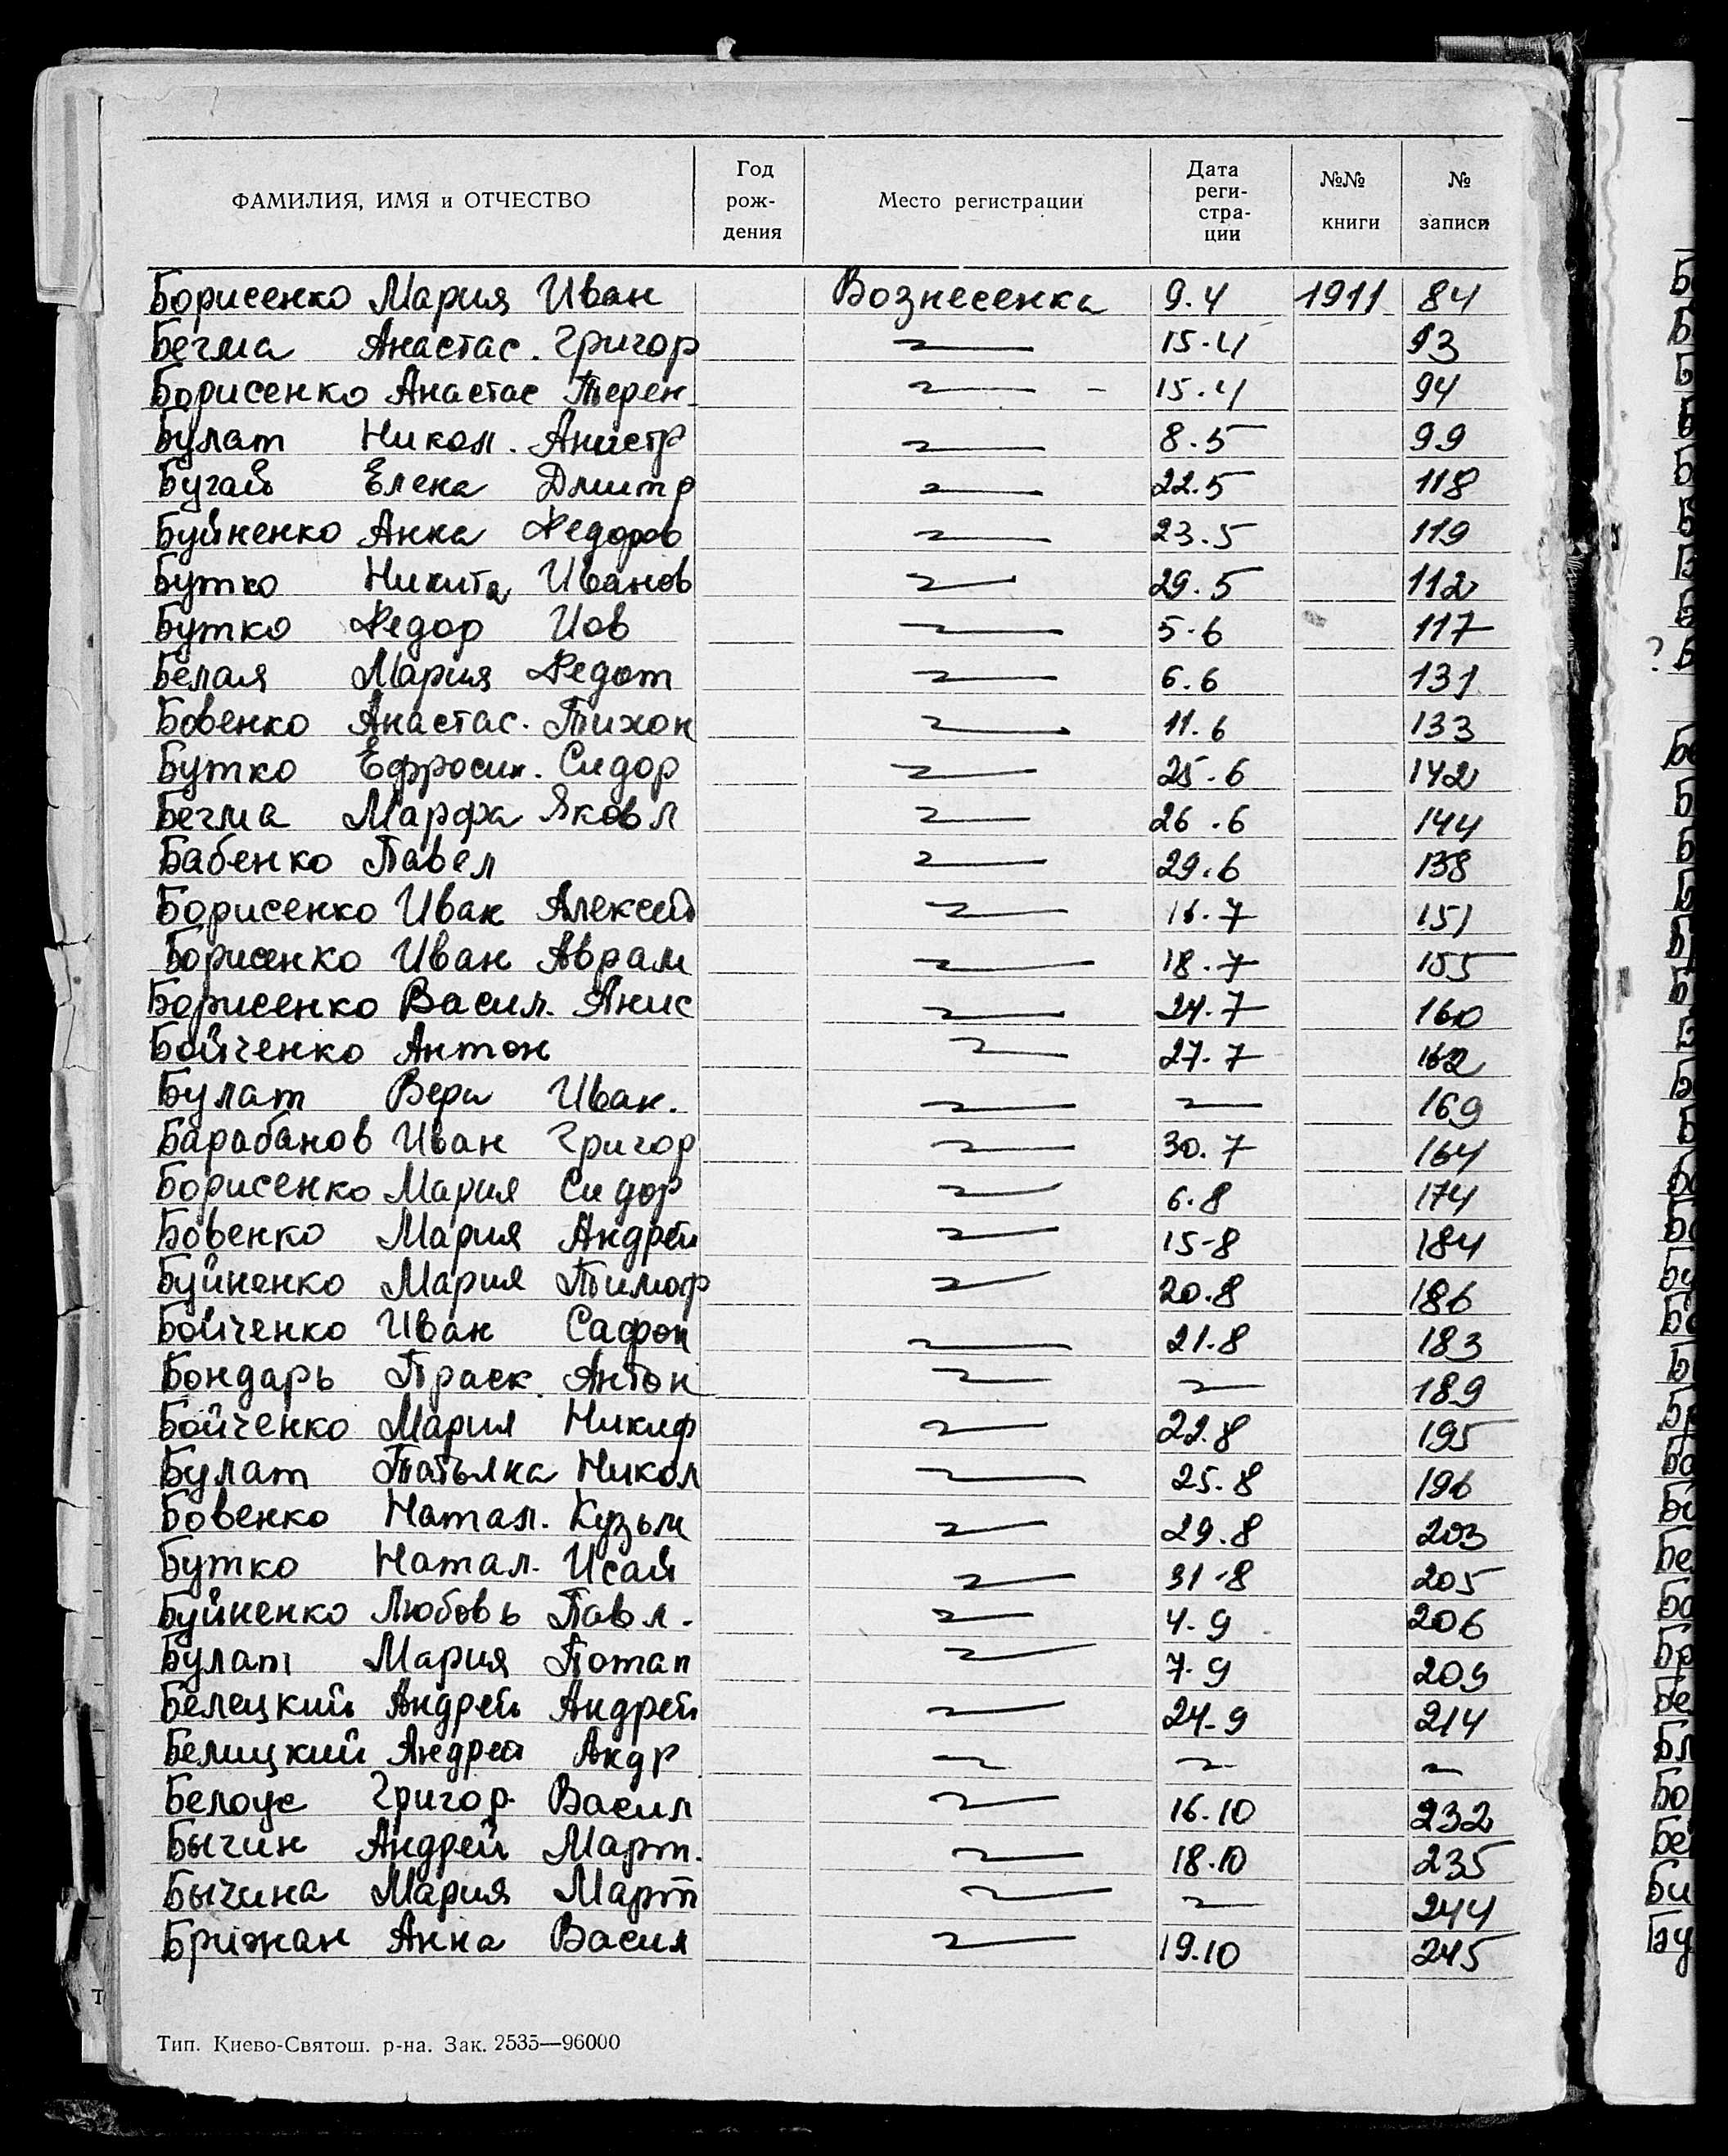 ФАМИЛИЯ, ИМЯ и ОТЧЕСТВО Год рож- дения Место регистрации Дата реги- стра- ции №№ книги № записи
Борисенко Мария Иван Вознесенка 9.4 1911 84
Бегма Анастас. Григор 15.4 93
Борисенко Анастас Терен. 15.4 94
Булат Никол. Анистр 8.5 99
Бугай Елена Дмитр 22.5 118
Буйненко Анна Федоров 23.5 119
Бутко Никита Иванов 29.5 112
Бутко Федор Иов 5.6 117
Белая Мария Федот 6.6 131
Бовенко Анастас. Тихон 11.6 133
Бутко Ефросин. Сидор 25.6 142
Бегма Марфа Яковл 26.6 144
Бабенко Павел 29.6 138
Борисенко Иван Алексей 16.7 151
Борисенко Иван Аврам 18.7 155
Борисенко Васил. Анис 24.7 160
Бойченко Антон 27.7 162
Булат Вера Иван. 169
Барабанов Иван Григор 30.7 164
Борисенко Мария Сидор 6.8 174
Бовенко Мария Андрей 15-8 184
Буйненко Мария Тимоф 20.8 186
Бойченко Иван Сафон 21.8 183
Бондарь Праск. Антон 189
Бойченко Мария Никиф 22.8 195
Булат Татьяна Никол 25.8 196
Бовенко Натал. Кузьм 29.8 203
Бутко Натал. Исай 31-8 205
Буйненко Любовь Павл. 4.9 206
Булат Мария Потап 7.9 209
Белецкий Андрей Андрей 24.9 214
Белицкий Андрей Андр
Белоус Григор. Васил 16.10 232
Бычин Андрей Март. 18.10 235
Бычина Мария Март 244
Брижан Анна Васил 19.10 245
Тип. Киево-Святош. р-на. Зак. 2535—96000